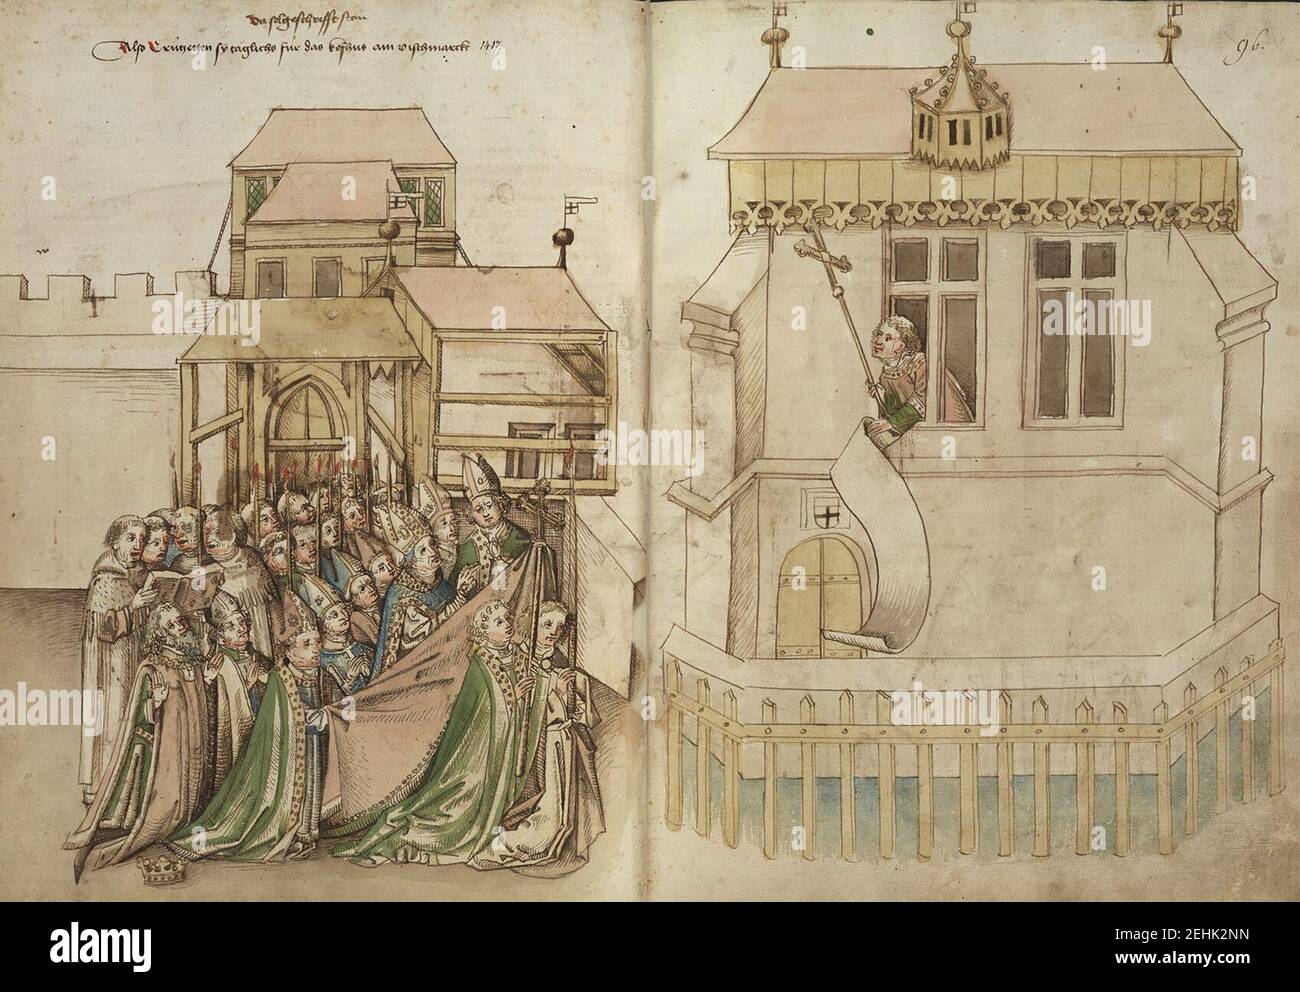 Da selgeschrifft ston
Also Crützeten sy täglichs für das kofhus am vischmarckt 1417
96.
alamy
Image ID: 2EHK2NN
www.alamy.com